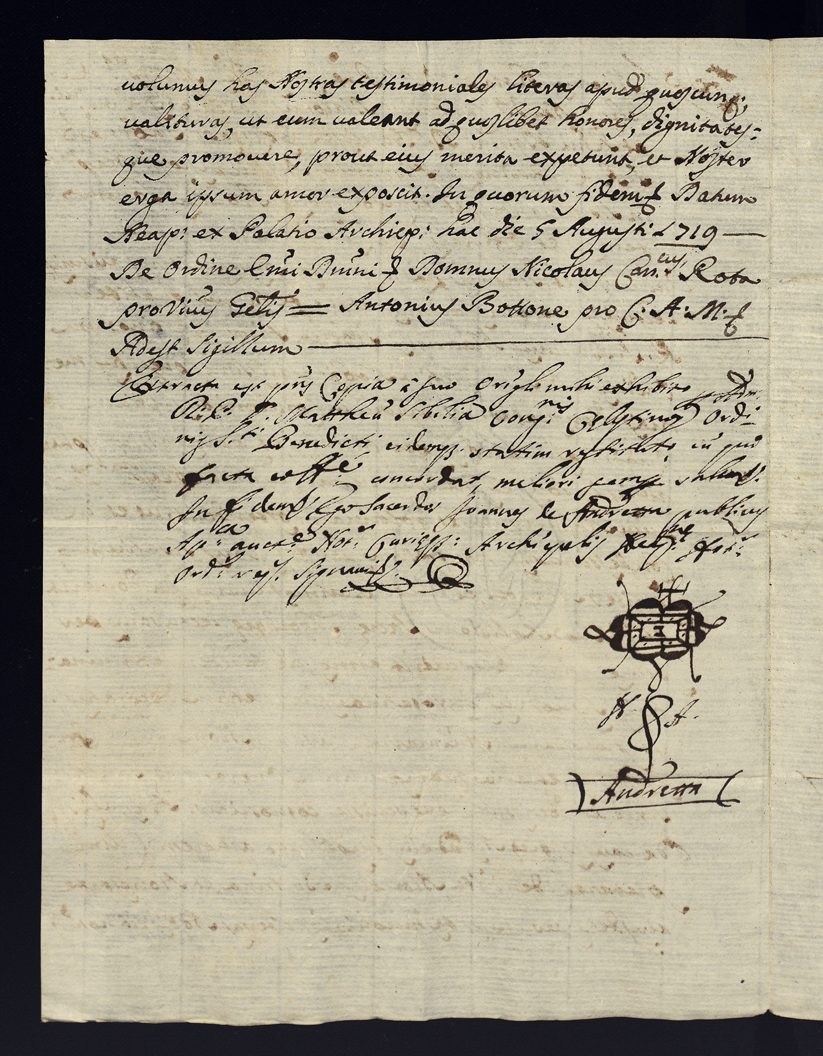 volumus has Nostras testimoniales literas apud quoscunq;
valituras, ut eum valeant ad quoslibet honores, dignitates=
que promovere, prout eius merita expetunt, et Noster
erga ipsum amor exposcit. In quorum fidem Datum
Neap: ex Palatio Archiep: hac die 5 Augusti 1719 —
De Ordine Emi Dmni Domnus Nicolaus Can.cus Rota
pro Vius Gelis = Antonius Bottone pro C. A. M.
Adest Sigillum
Extracta est pns Copia a suo Origli mihi exhibito
P. Mattheu Sibilia Cong.nis Celestinor Ordi-
nis S.ti Benedicti eidemq statim restituto cu quo
facta coll.e concordat, meliori semp salva
In fidem Ego Sacerdos Joannes de Andretta publicus
Ap.ca auct.e Not.s Curie Archiepalis Neap.ne
signavi
N. A.
Andretta